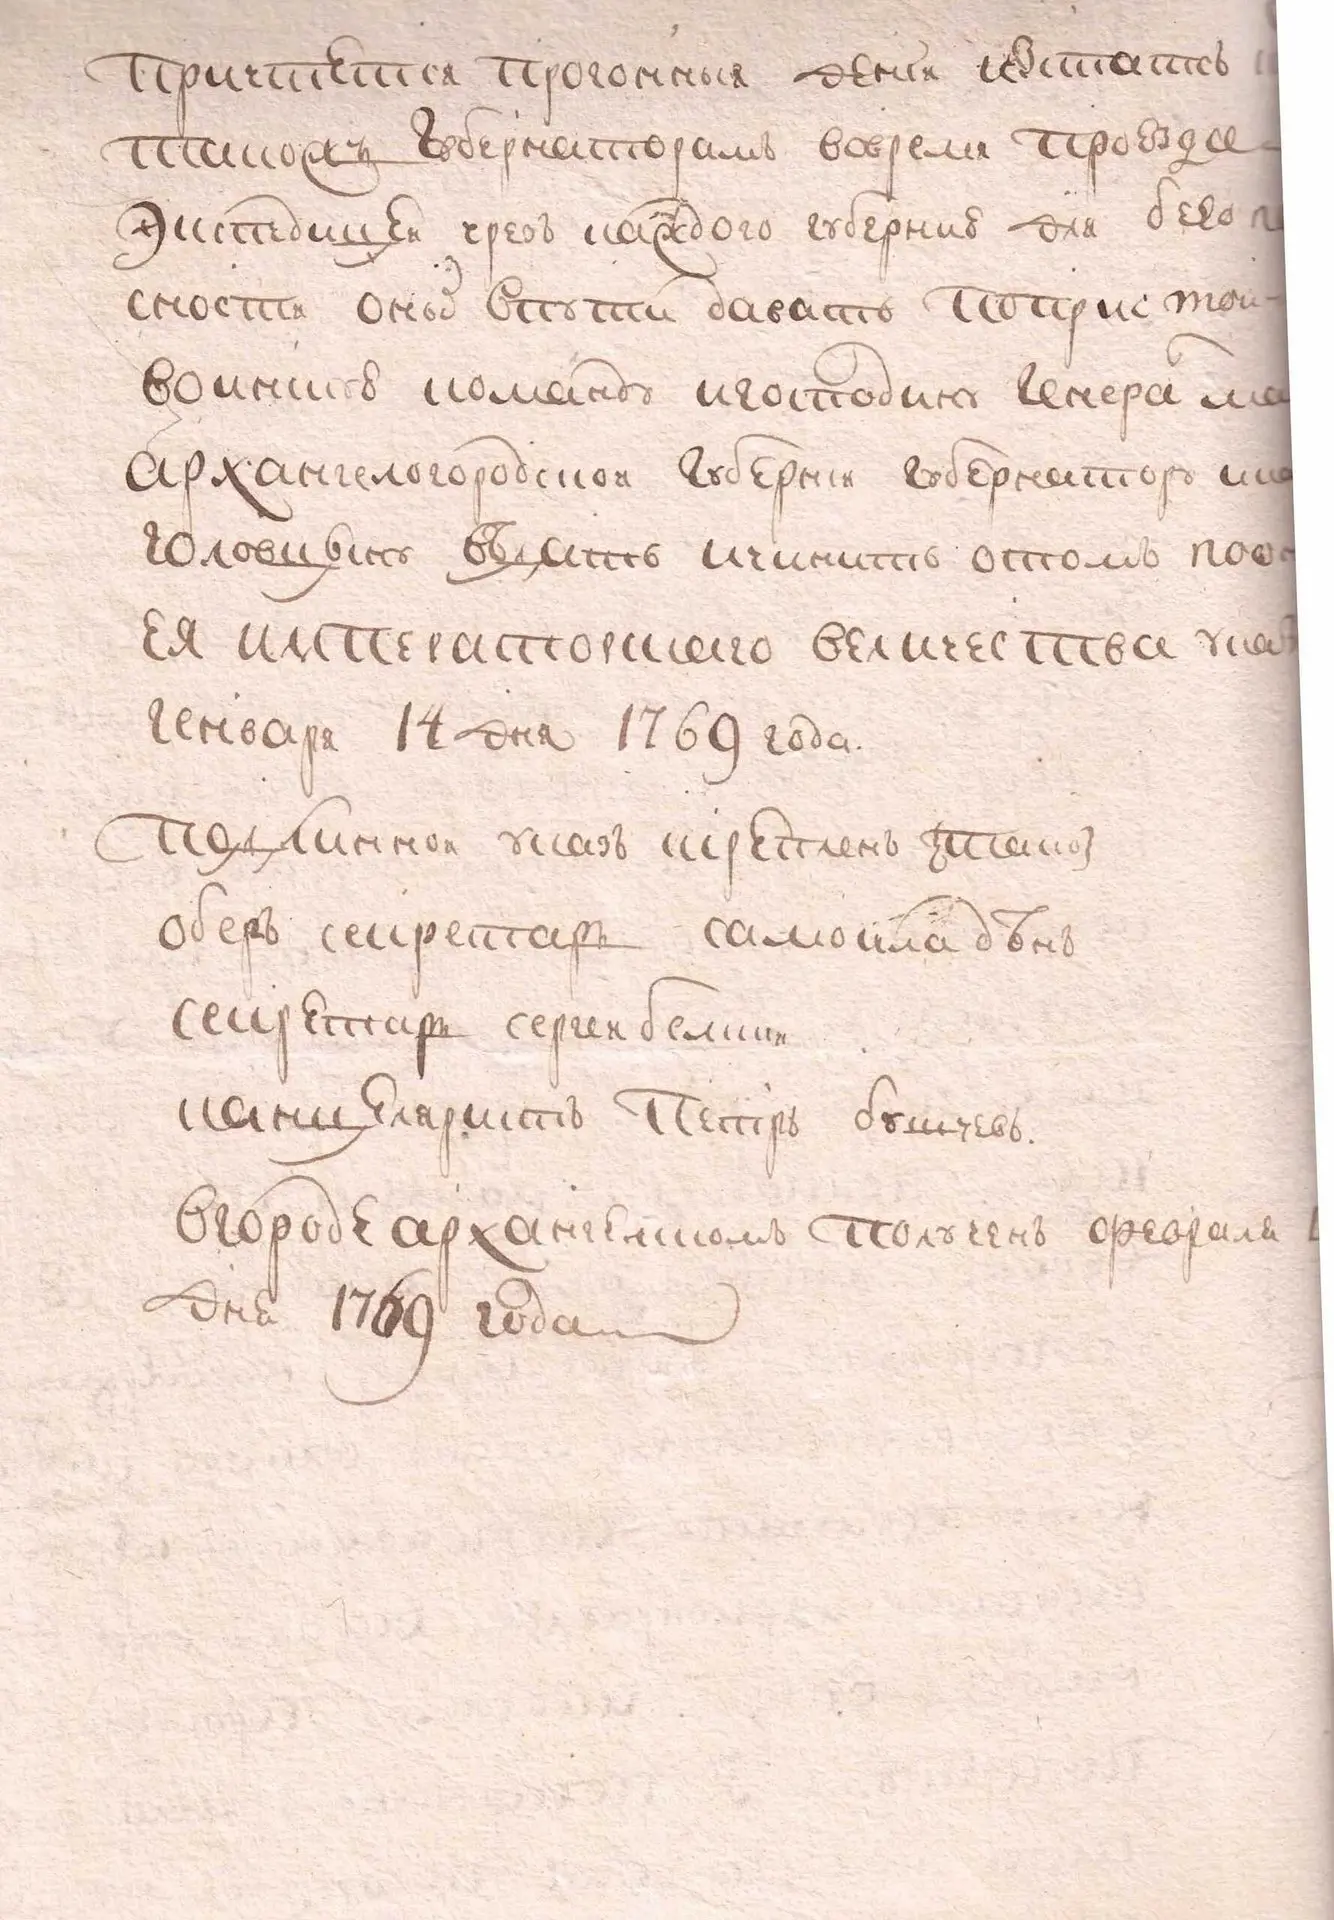 причтетса прогонныя денги и въштатъ
также губернаторамъ вовремя проезда
экспедицеи чрезъ каждого губерние для безоп
сности оныхъ впути давать попристой
воинские командъ игосподинъ генерал ма
архангелогородской губернии губернаторъ ика
головцынъ ведать ичинить отомъ посе
ея императорского величества указ
генваря 14 дня 1769 года.
подлинной указъ скреплен тако
оберъ секретарь самоила дѣнъ
секретарь сергеи белкин
канцеляристъ петръ бушчевъ.
вгороде архангелскомъ полученъ февраля
дня 1769 года